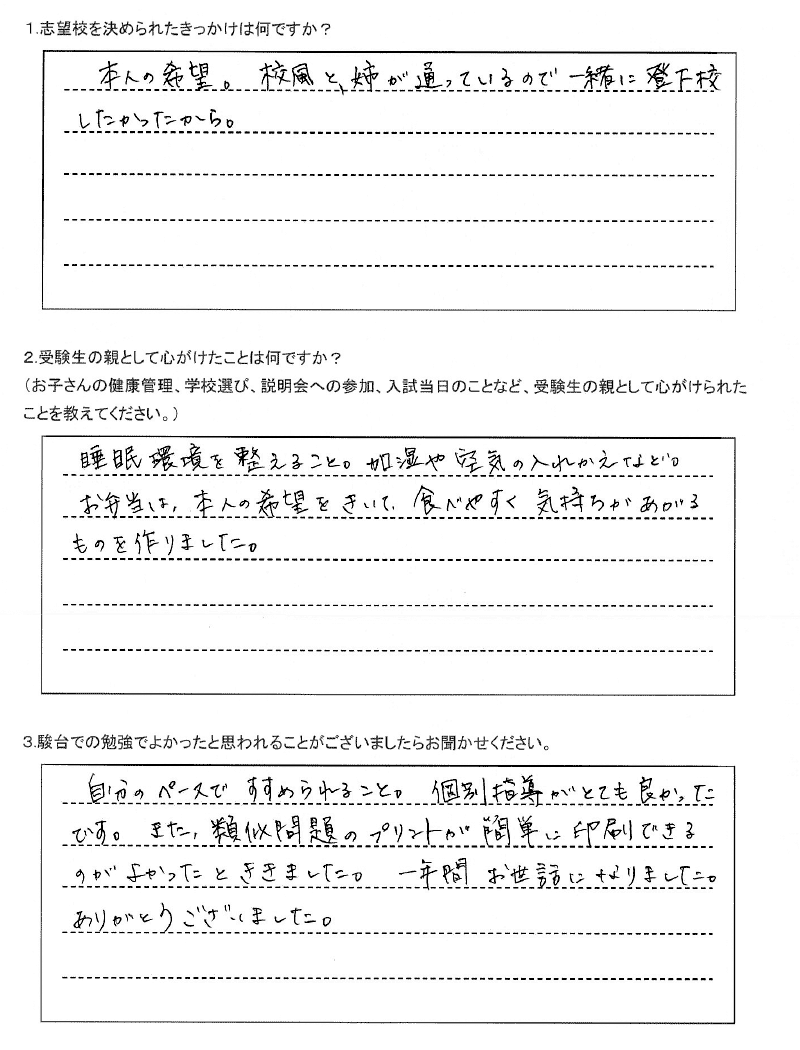 1.志望校を決められたきっかけは何ですか？
本人の希望。校風と、姉が通っているので一緒に登下校
したかったから。
2.受験生の親として心がけたことは何ですか？
（お子さんの健康管理、学校選び、説明会への参加、入試当日のことなど、受験生の親として心がけられた
ことを教えてください。）
睡眠環境を整えること。加湿や空気の入れかえなど。
お弁当は、本人の希望をきいて、食べやすく気持ちがあがる
ものを作りました。
3.駿台での勉強でよかったと思われることがございましたらお聞かせください。
自分のペースですすめられること。個別指導がとても良かった
です。また、類似問題のプリントが簡単に印刷できる
のがよかったとききました。一年間お世話になりました。
ありがとうございました。